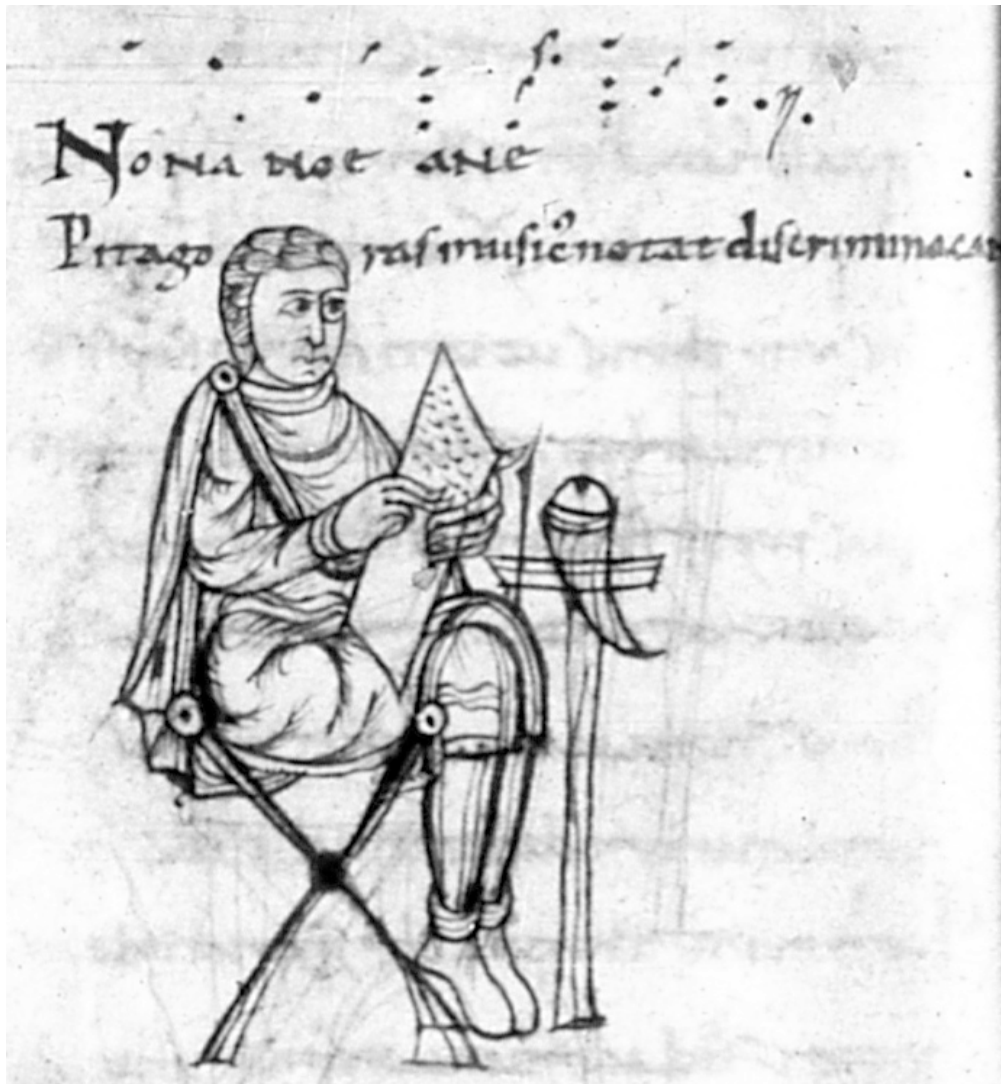 Nona noe ane
Pitagoras music̄ notat discrimina ca